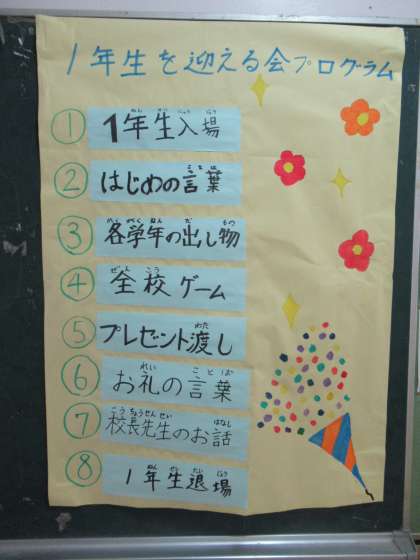 1年生を迎える会プログラム
① 1年生入場
② はじめの言葉
③ 各学年の出し物
④ 全校ゲーム
⑤ プレゼント渡し
⑥ お礼の言葉
⑦ 校長先生のお話
⑧ 1年生退場